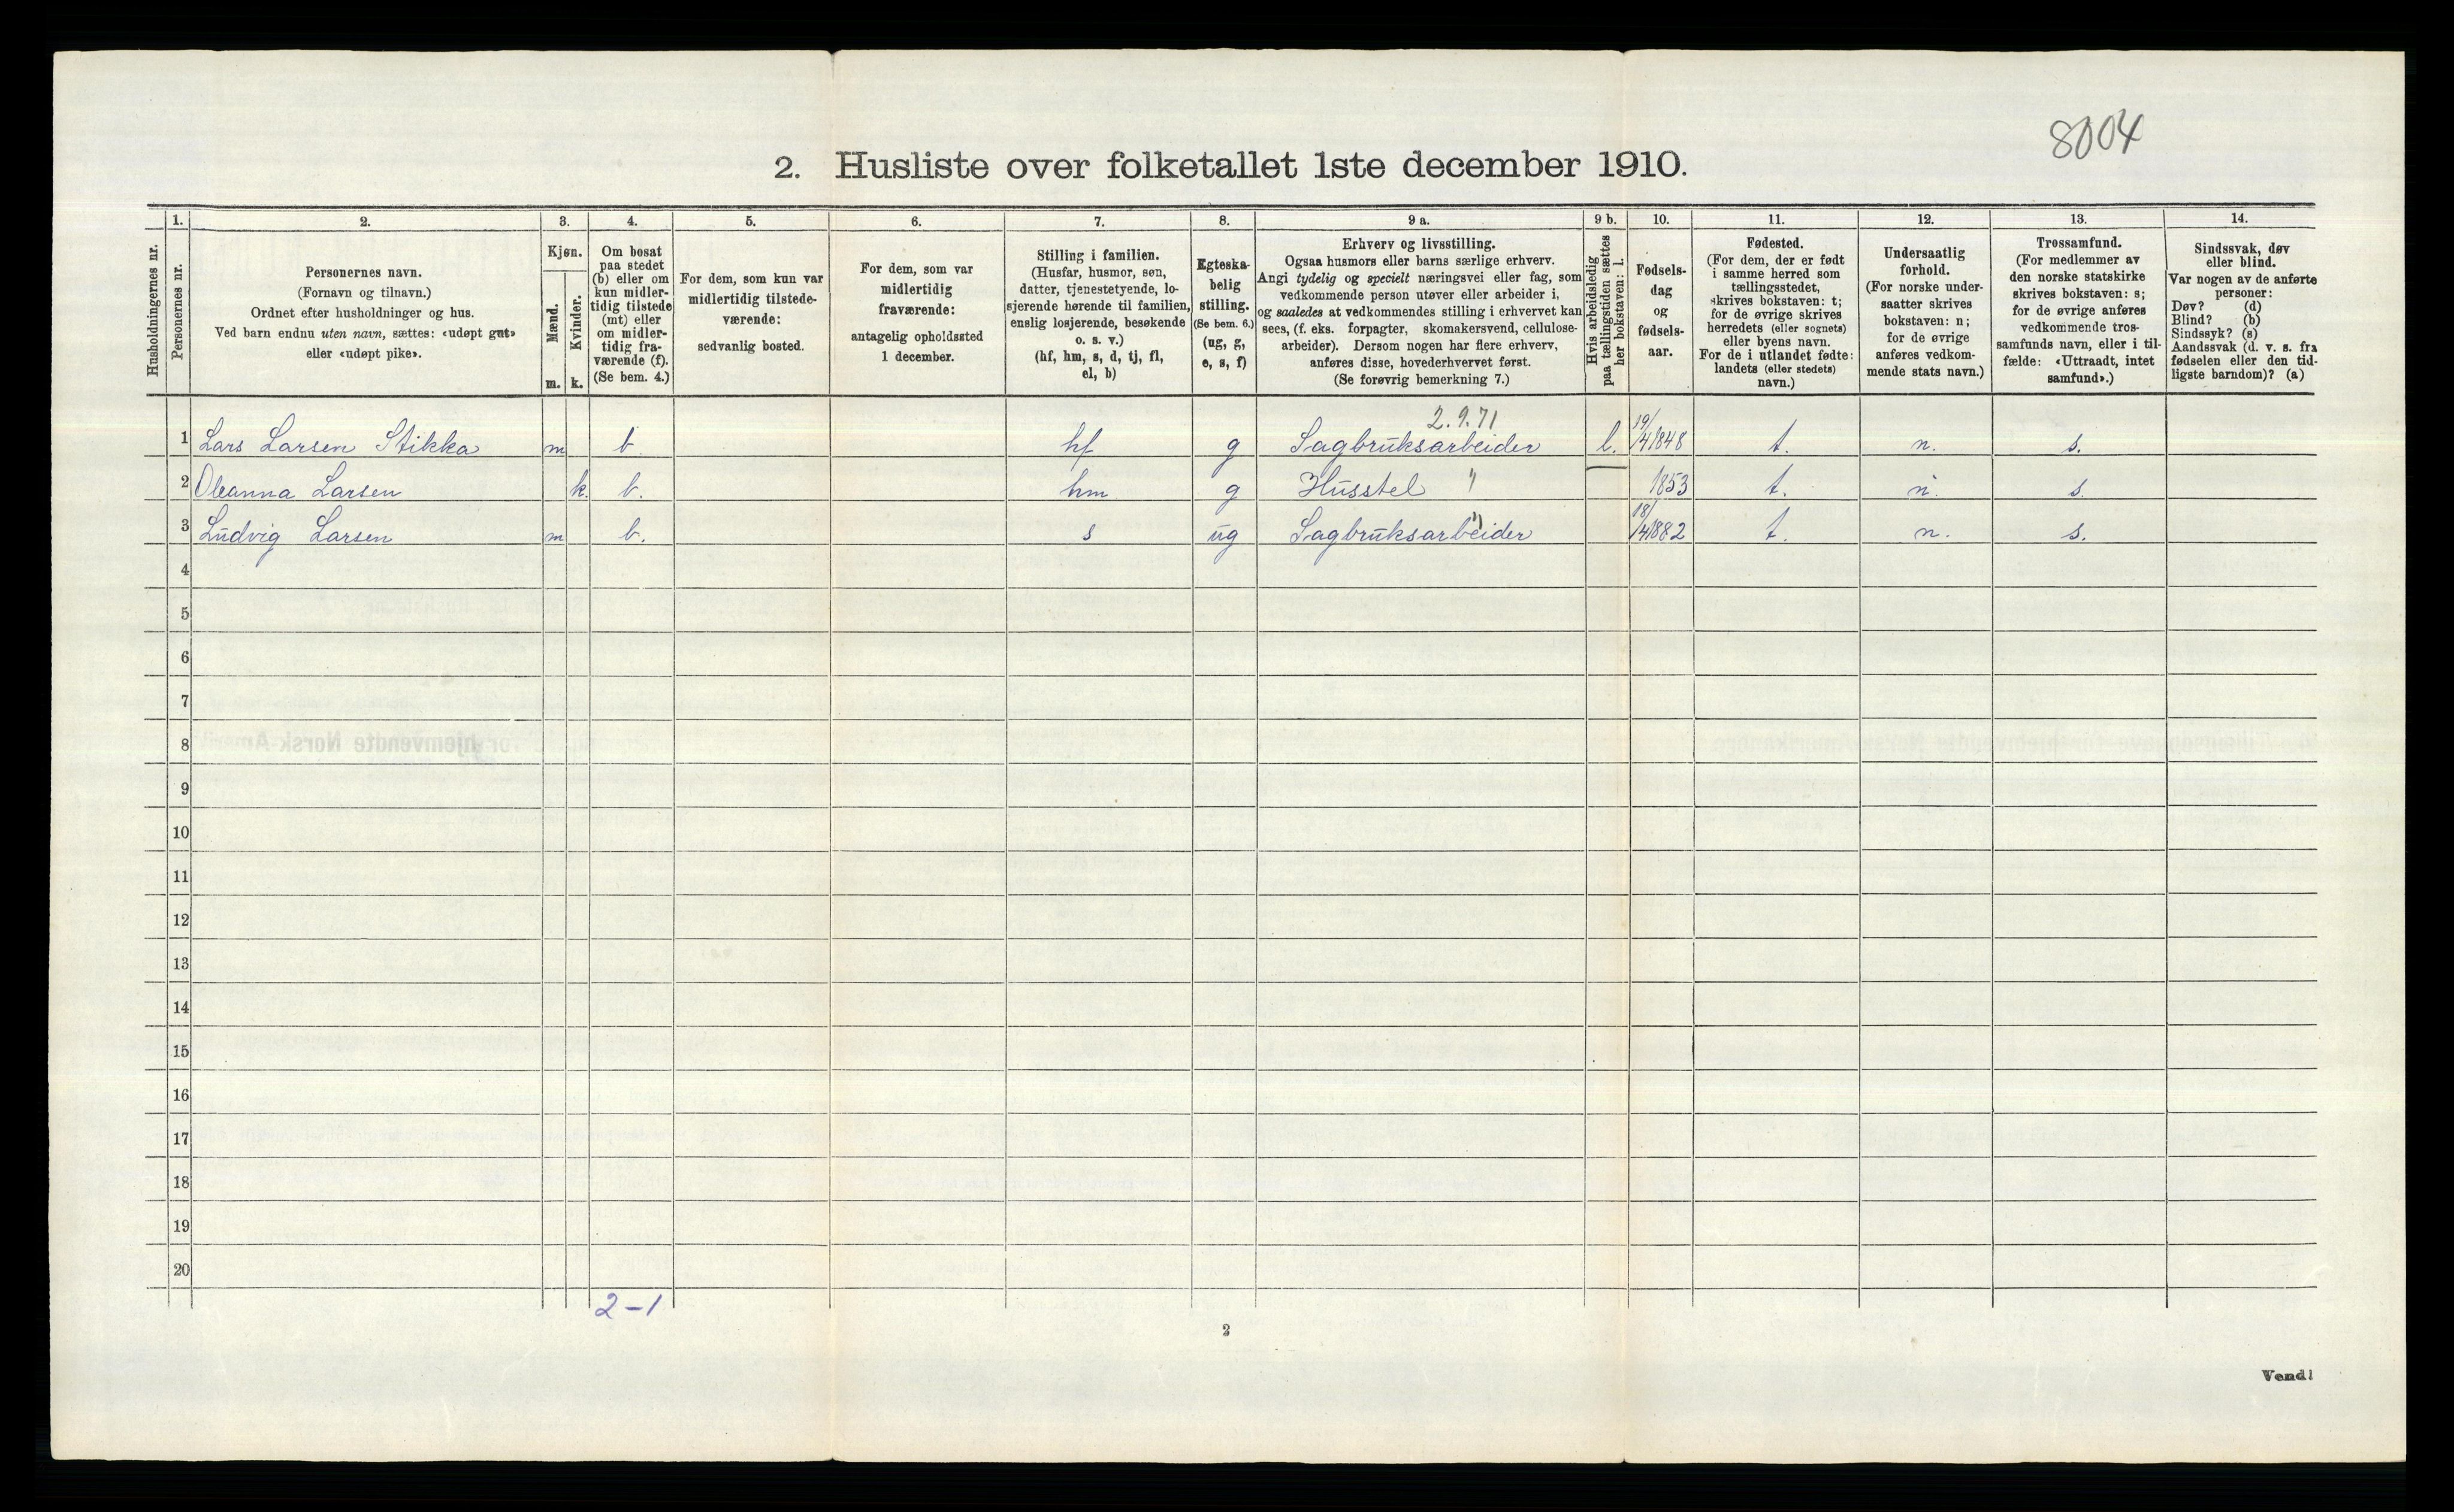 8004
2. Husliste over folketallet 1ste december 1910.
Husholdningernes nr.
1.
Personernes nr.
2.
Personernes navn.
(Fornavn og tilnavn.)
Ordnet efter husholdninger og hus.
Ved barn endnu uten navn, sættes: «udøpt gut»
eller «udøpt pike».
3.
Kjøn.
Mænd.
m.
Kvinder.
k.
4.
Om bosat
paa stedet
(b) eller om
kun midler-
tidig tilstede
(mt) eller
om midler-
tidig fra-
værende (f).
(Se bem. 4.)
5.
For dem, som kun var
midlertidig tilstede-
værende:
sedvanlig bosted.
6.
For dem, som var
midlertidig
fraværende:
antagelig opholdssted
1 december.
7.
Stilling i familien.
(Husfar, husmor, søn,
datter, tjenestetyende, lo-
sjerende hørende til familien,
enslig losjerende, besøkende
o. s. v.)
(hf, hm, s, d, tj, fl,
el, b)
8.
Egteska-
belig
stilling.
(Se bem. 6.)
(ug, g,
e, s, f)
9 a.
Erhverv og livsstilling.
Ogsaa husmors eller barns særlige erhverv.
Angi tydelig og specielt næringsvei eller fag, som
vedkommende person utøver eller arbeider i,
og saaledes at vedkommendes stilling i erhvervet kan
sees, (f. eks. forpagter, skomakersvend, cellulose-
arbeider). Dersom nogen har flere erhverv,
anføres disse, hovederhvervet først.
(Se forøvrig bemerkning 7.)
9 b.
Hvis arbeidsledig
paa tællingstiden sættes
her bokstaven: l.
10.
Fødsels-
dag
og
fødsels-
aar.
11.
Fødested.
(For dem, der er født
i samme herred som
tællingsstedet,
skrives bokstaven: t;
for de øvrige skrives
herredets (eller sognets)
eller byens navn.
For de i utlandet fødte:
landets (eller stedets)
navn.)
12.
Undersaatlig
forhold.
(For norske under-
saatter skrives
bokstaven: n;
for de øvrige
anføres vedkom-
mende stats navn.)
13.
Trossamfund.
(For medlemmer av
den norske statskirke
skrives bokstaven: s;
for de øvrige anføres
vedkommende tros-
samfunds navn, eller i til-
fælde: «Uttraadt, intet
samfund».)
14.
Sindssvak, døv
eller blind.
Var nogen av de anførte
personer:
Døv? (d)
Blind? (b)
Sindssyk? (s)
Aandssvak (d. v. s. fra
fødselen eller den tid-
ligste barndom)? (a)
2.9.71
1 Lars Larsen Stikka m b. hf g Sagbruksarbeider l. 19/4 1848 t. n. s.
2 Oleanna Larsen k. b. hm g Husstel " 1853 t. n. s.
3 Ludvig Larsen m b. s ug Sagbruksarbeider " 18/4 1882 t. n. s.
4
5
6
7
8
9
10
11
12
13
14
15
16
17
18
19
20
2-1
2
Vend!